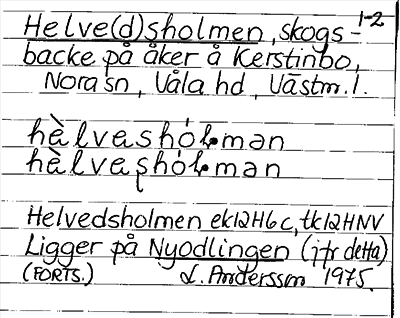 1-2
Helve(d)sholmen, skogs-
backe på åker å Kerstinbo,
Nora sn, Våla hd, Västm. l.
hèlvashól·man
hèlvaʂhól·man
Helvedsholmen ek12H6c, tk12HNV
Ligger på Nyodlingen (jfr detta)
(FORTS.) L. Andersson 1975.